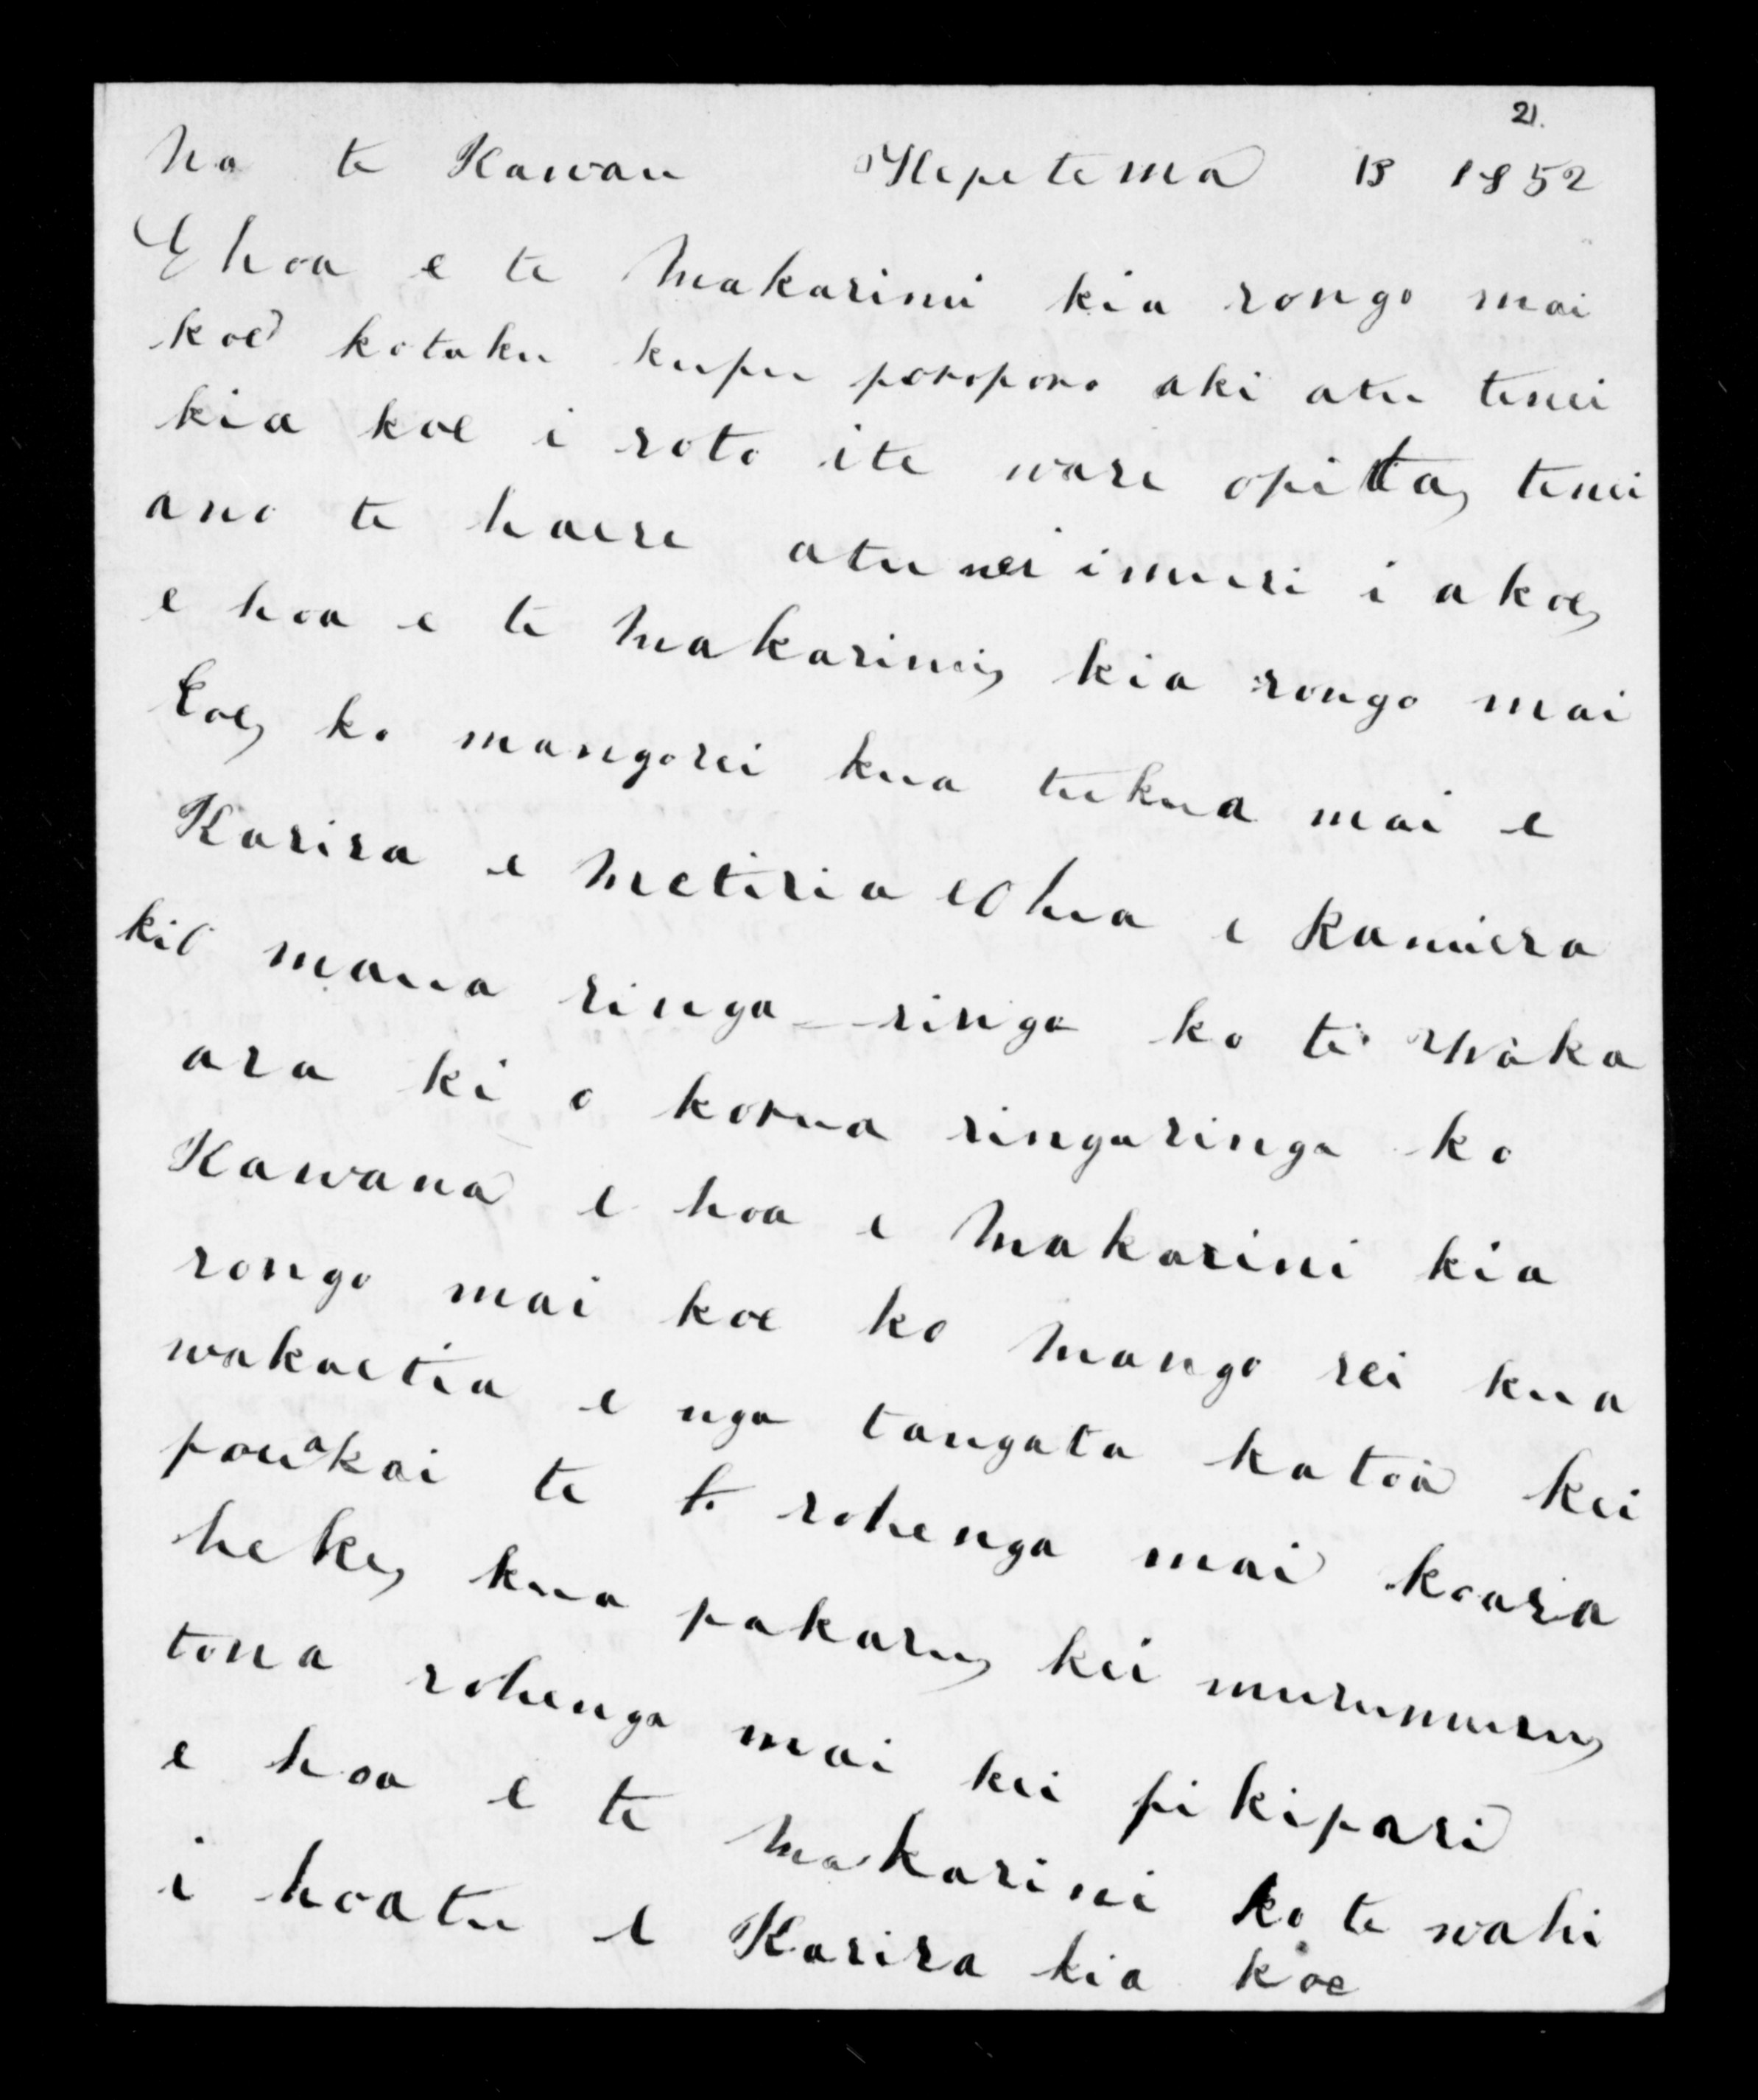 21.
Na te Kawau Hepetema 13 1852
E hoa e te Makarini kia rongo mai
koe kotaku kupu poroporo aki atu tenei
kia koe i roto ite ware opitta, tenei
ano te haere atu nei imuri i akoe,
e hoa e te Makarini, kia rongo mai
koe, ko mangorei kua tukua mai e
Karira e Metiria e Ohua e Kamiera
kio maua ringa-ringa ko te Waka
ara ki o korua ringaringa ko
Kawana e hoa e Makarini kia
rongo mai koe ko Mango rei kua
wakaetia e nga tangata katoa kei
pouakai te t rohenga mai koara
heke, kua pakaru, kei murumuru,
tona rohenga mai kei pikipari
e hoa e te Makarini ko te wahi
i hoatu e Karira kia koe